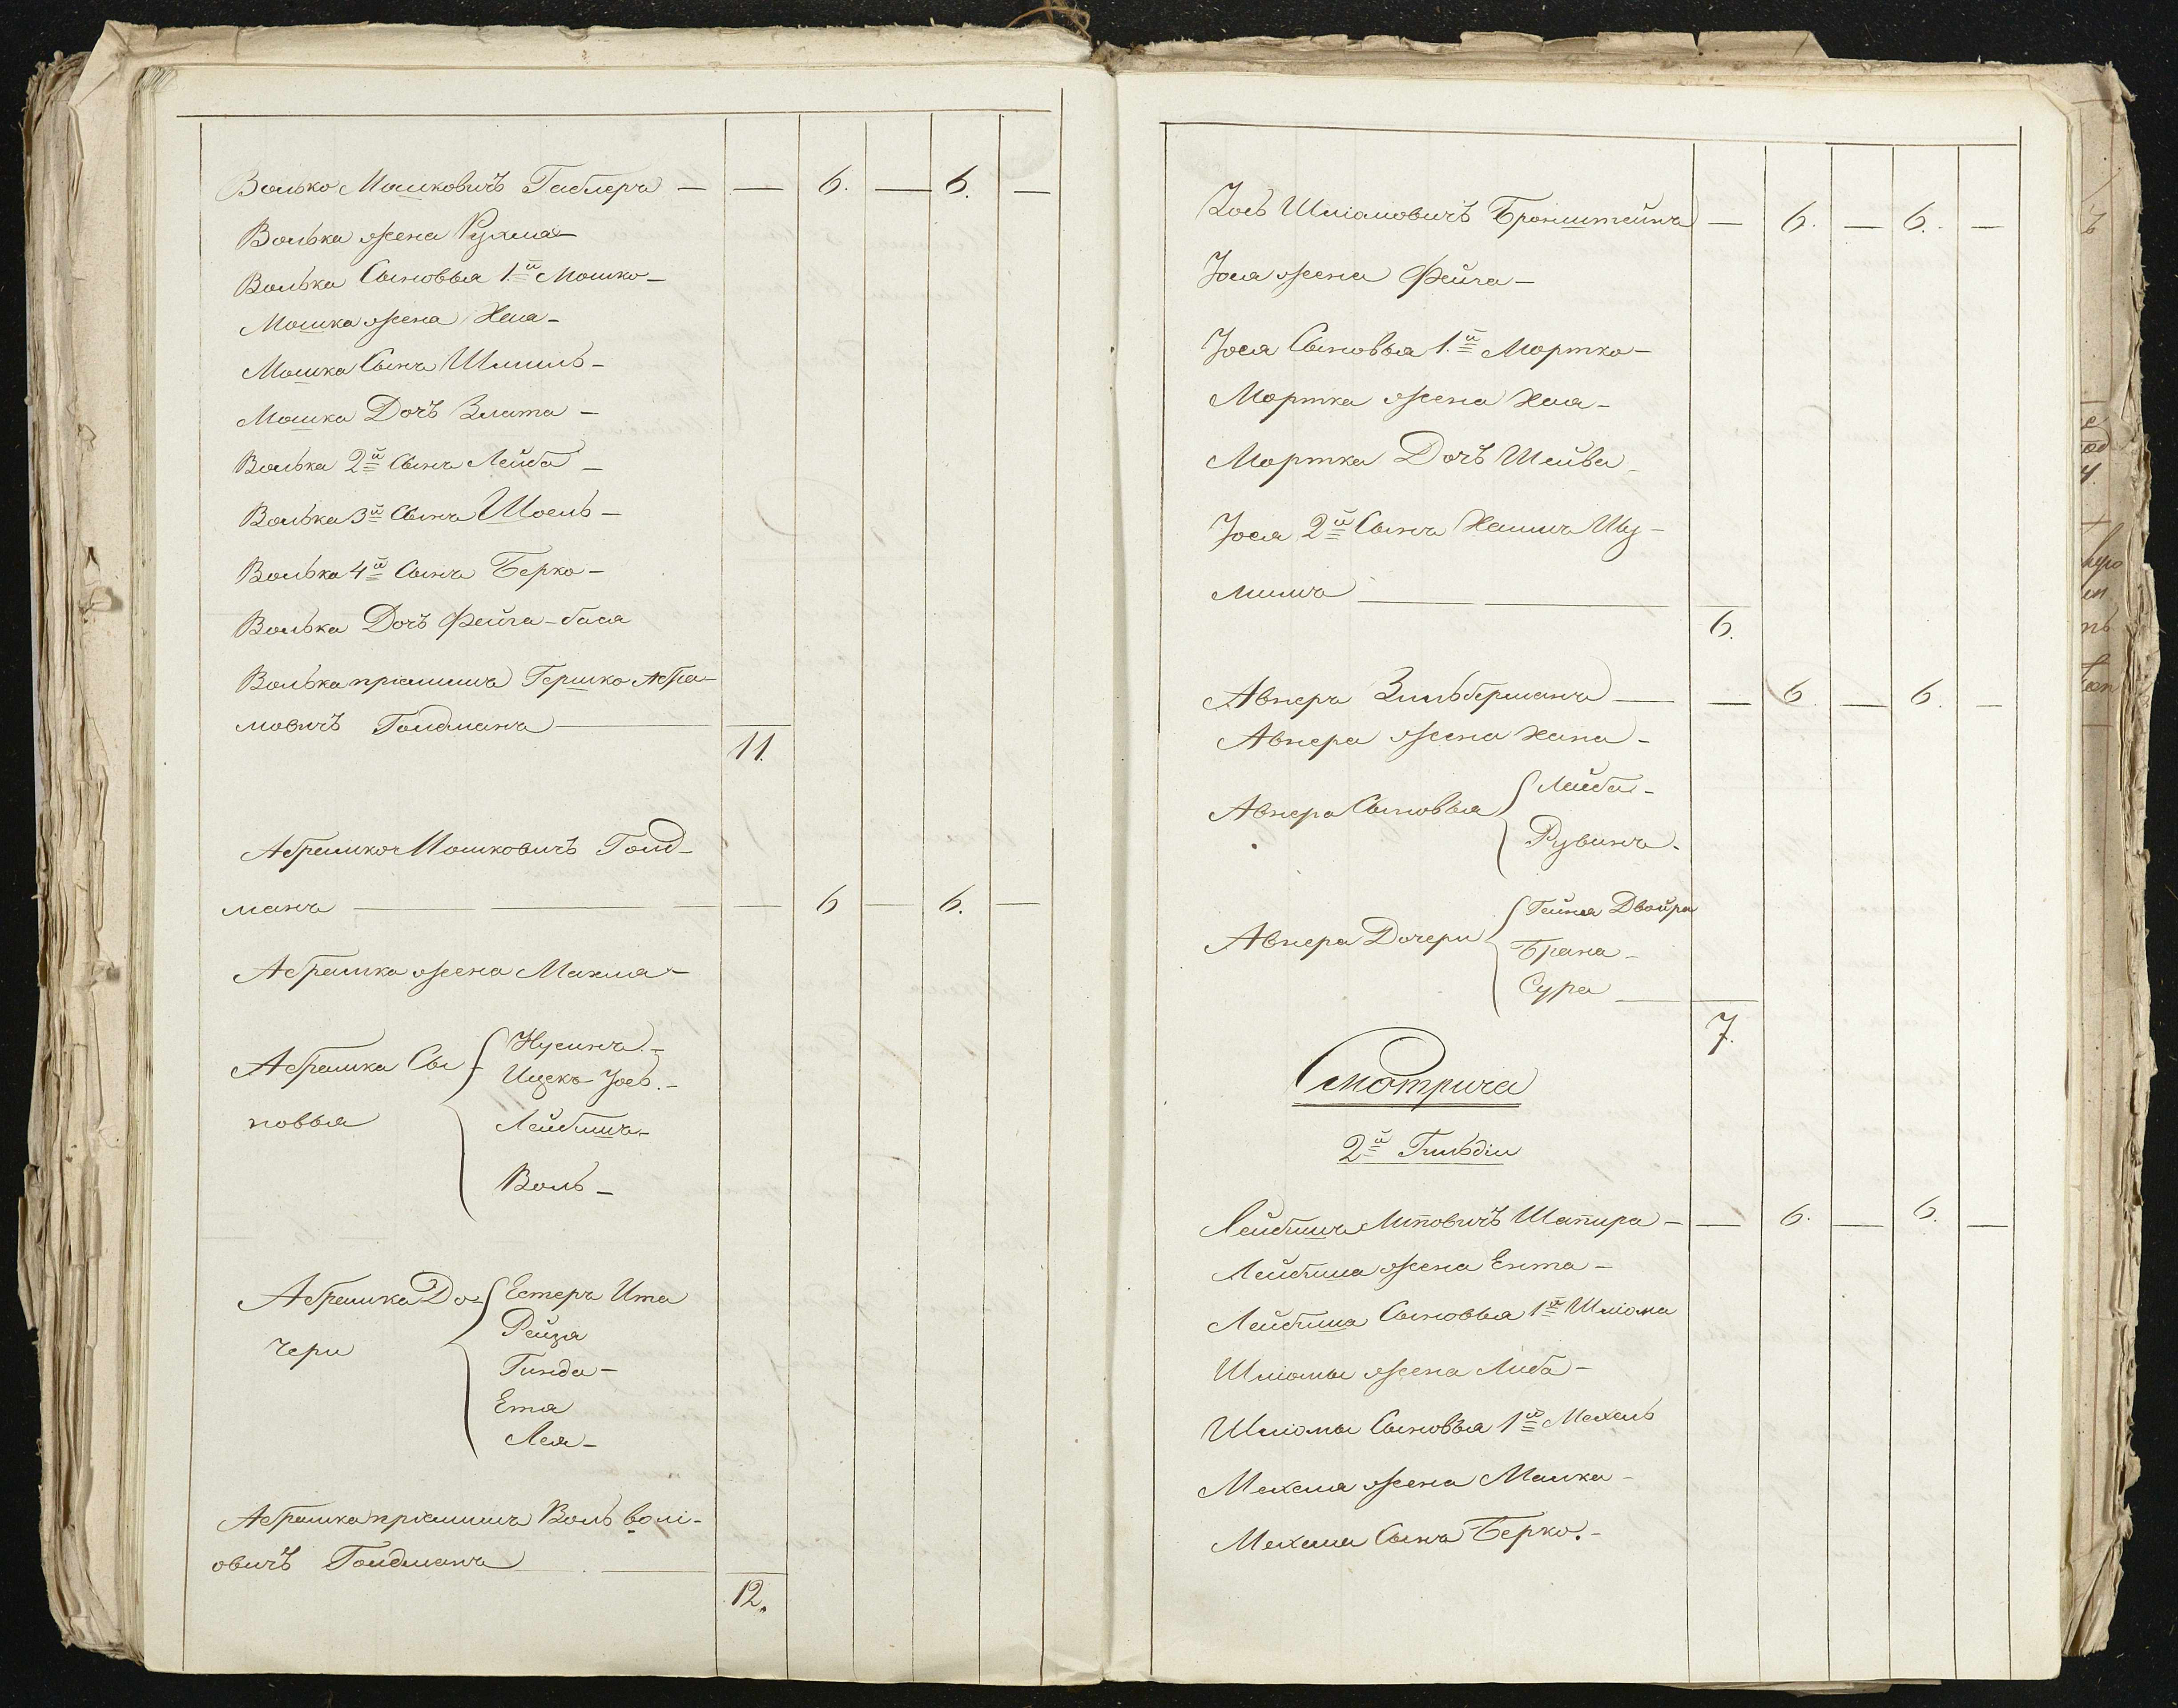 Волько Мошковичъ Габлеръ — — 6. — 6. —
Волька жена Рухма —
Волька Сыновья 1.й Мошко —
Мошка жена Хая —
Мошка Сынъ Шмиль —
Мошка Дочь Злата —
Волька 2й Сынъ Лейба —
Волька 3й Сынъ Шоель —
Волька 4й Сынъ Берко —
Волька Дочь Фейга-бася
Волька пріемышъ Гершко Абра-
мовичъ Голдманъ —
11.
Абрамко Мошковичъ Голд-
манъ — — — — 6 — 6. —
Абрамка жена Макля —
Абрамка Сы- Нусинъ. —
Ицекъ Іось. —
новья Лейбишъ —
Воль —
Абрамка До- Естеръ Ита
Рейзя
чери Гинда —
Ета
Лея —
Абрамка пріемышъ Воль волі-
овичъ Голдманъ —
12.
Іось Шліомовичъ Бронштейнъ — 6. — 6. —
Іося жена Фейга —
Іося Сыновья 1.й Мортко —
Мортка жена Хая —
Мортка Дочь Шейва —
Іося 2й Сынъ Хаимъ Шу-
лимъ — —
6.
Авнеръ Зильберманъ — — 6. — 6. —
Авнера жена Хана —
Авнера Сыновья Лейба —
Рувинъ.
Авнера Дочери Гейня Двойра
Брана —
Сура —
7.
Смотрича
2й Гильдіи
Лейбишъ Мповичъ Шапира — — 6. — 6. —
Лейбиша жена Ента —
Лейбиша Сыновья 1й Шліома
Шліомы жена Либа —
Шліомы Сыновья 1й Мехель
Мехеля жена Малка —
Мехеля Сынъ Берко. —